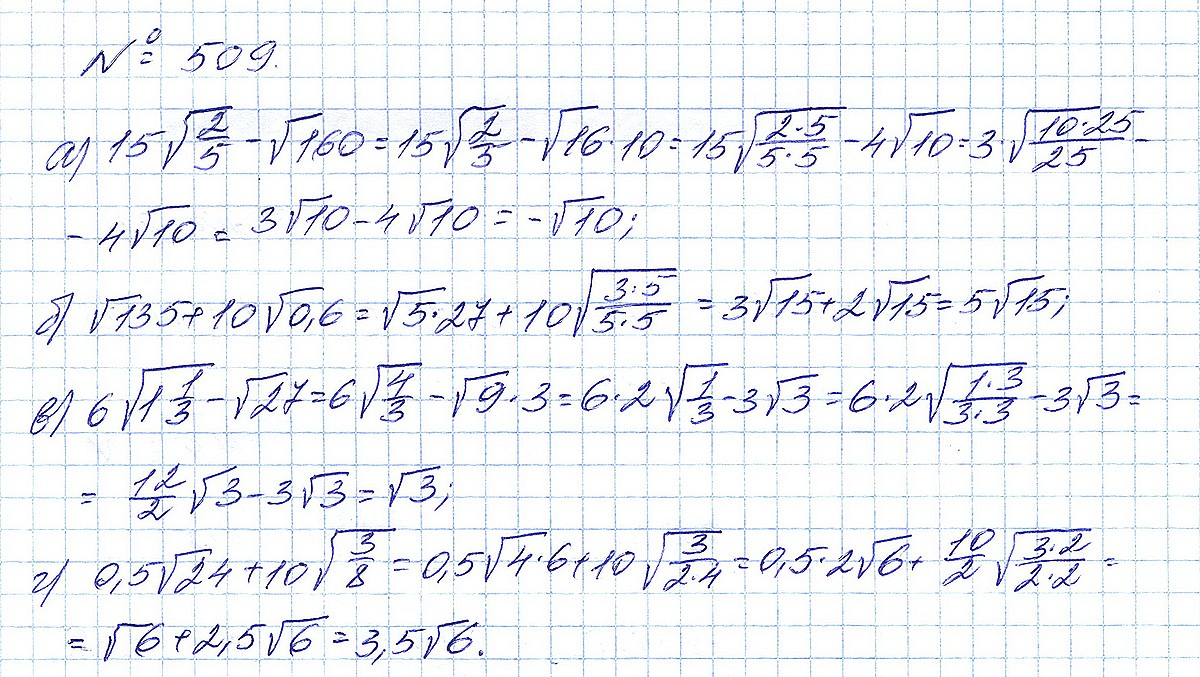 № 509.
а) 15√(2/5) - √160 = 15√(2/5) - √16·10 = 15√((2·5)/(5·5)) - 4√10 = 3·√((10·25)/25) -
- 4√10 = 3√10 - 4√10 = -√10;
б) √135 + 10√0,6 = √5·27 + 10√((3·5)/(5·5)) = 3√15 + 2√15 = 5√15;
в) 6√(1 1/3) - √27 = 6√(4/3) - √9·3 = 6·2√(1/3) - 3√3 = 6·2√((1·3)/(3·3)) - 3√3 =
= 12/2 √3 - 3√3 = √3;
г) 0,5√24 + 10√(3/8) = 0,5√4·6 + 10√(3/(2·4)) = 0,5·2√6 + 10/2 √((3·2)/(2·2)) =
= √6 + 2,5√6 = 3,5√6.